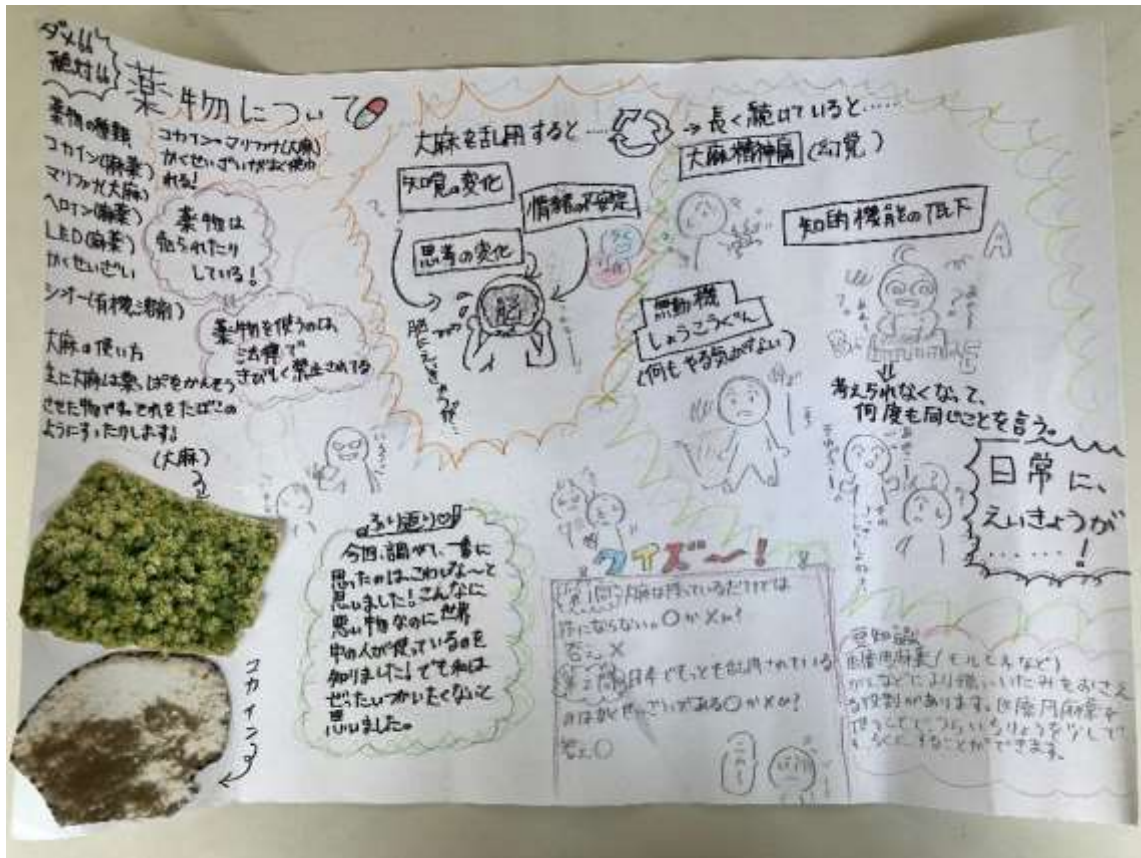 ダメ!!
絶対!!
薬物について
薬物の種類
コカイン(麻薬)
マリファナ(大麻)
ヘロイン(麻薬)
LED(麻薬)
かくせいざい
シンナー(有機溶剤)
コカイン・マリファナ(大麻)
かくせいざいがよく使わ
れる!
薬物は
売られたり
している!
薬物を使うのは、
法律で
きびしく禁止されてる
大麻の使い方
主に大麻は葉、
させた物です。それをたばこの
ようにすったりします。
(大麻)
コカイン
大麻を乱用すると…
知覚の変化
情緒の不安定
思考の変化
脳
脳にえいきょうが…
→長く続けていると……
大麻精神病(幻覚)
知的機能の低下
無動機
しょうこうぐん
(何もやる気がない)
考えられなくなって、
何度も同じことを言う。
日常に、
えいきょうが
……!
ふり返り
今回、調べて、一番に
思ったのは、こわいな〜と
思いました!こんなに
悪い物なのに世界
中の人が使っているのを
知りました!でも私は
ぜったいつかいたくないと
思いました。
クイズ〜!
第1問 大麻は持っているだけでは
罪にならない。○か×か?
答え ×
第2問 日本でもっとも乱用されている
のはかくせいざいである○か×か?
答え○
豆知識
医療用麻薬(モルヒネなど)
がんなどにより強いいたみをおさえ
る役割があります。医療用麻薬を
することができます。